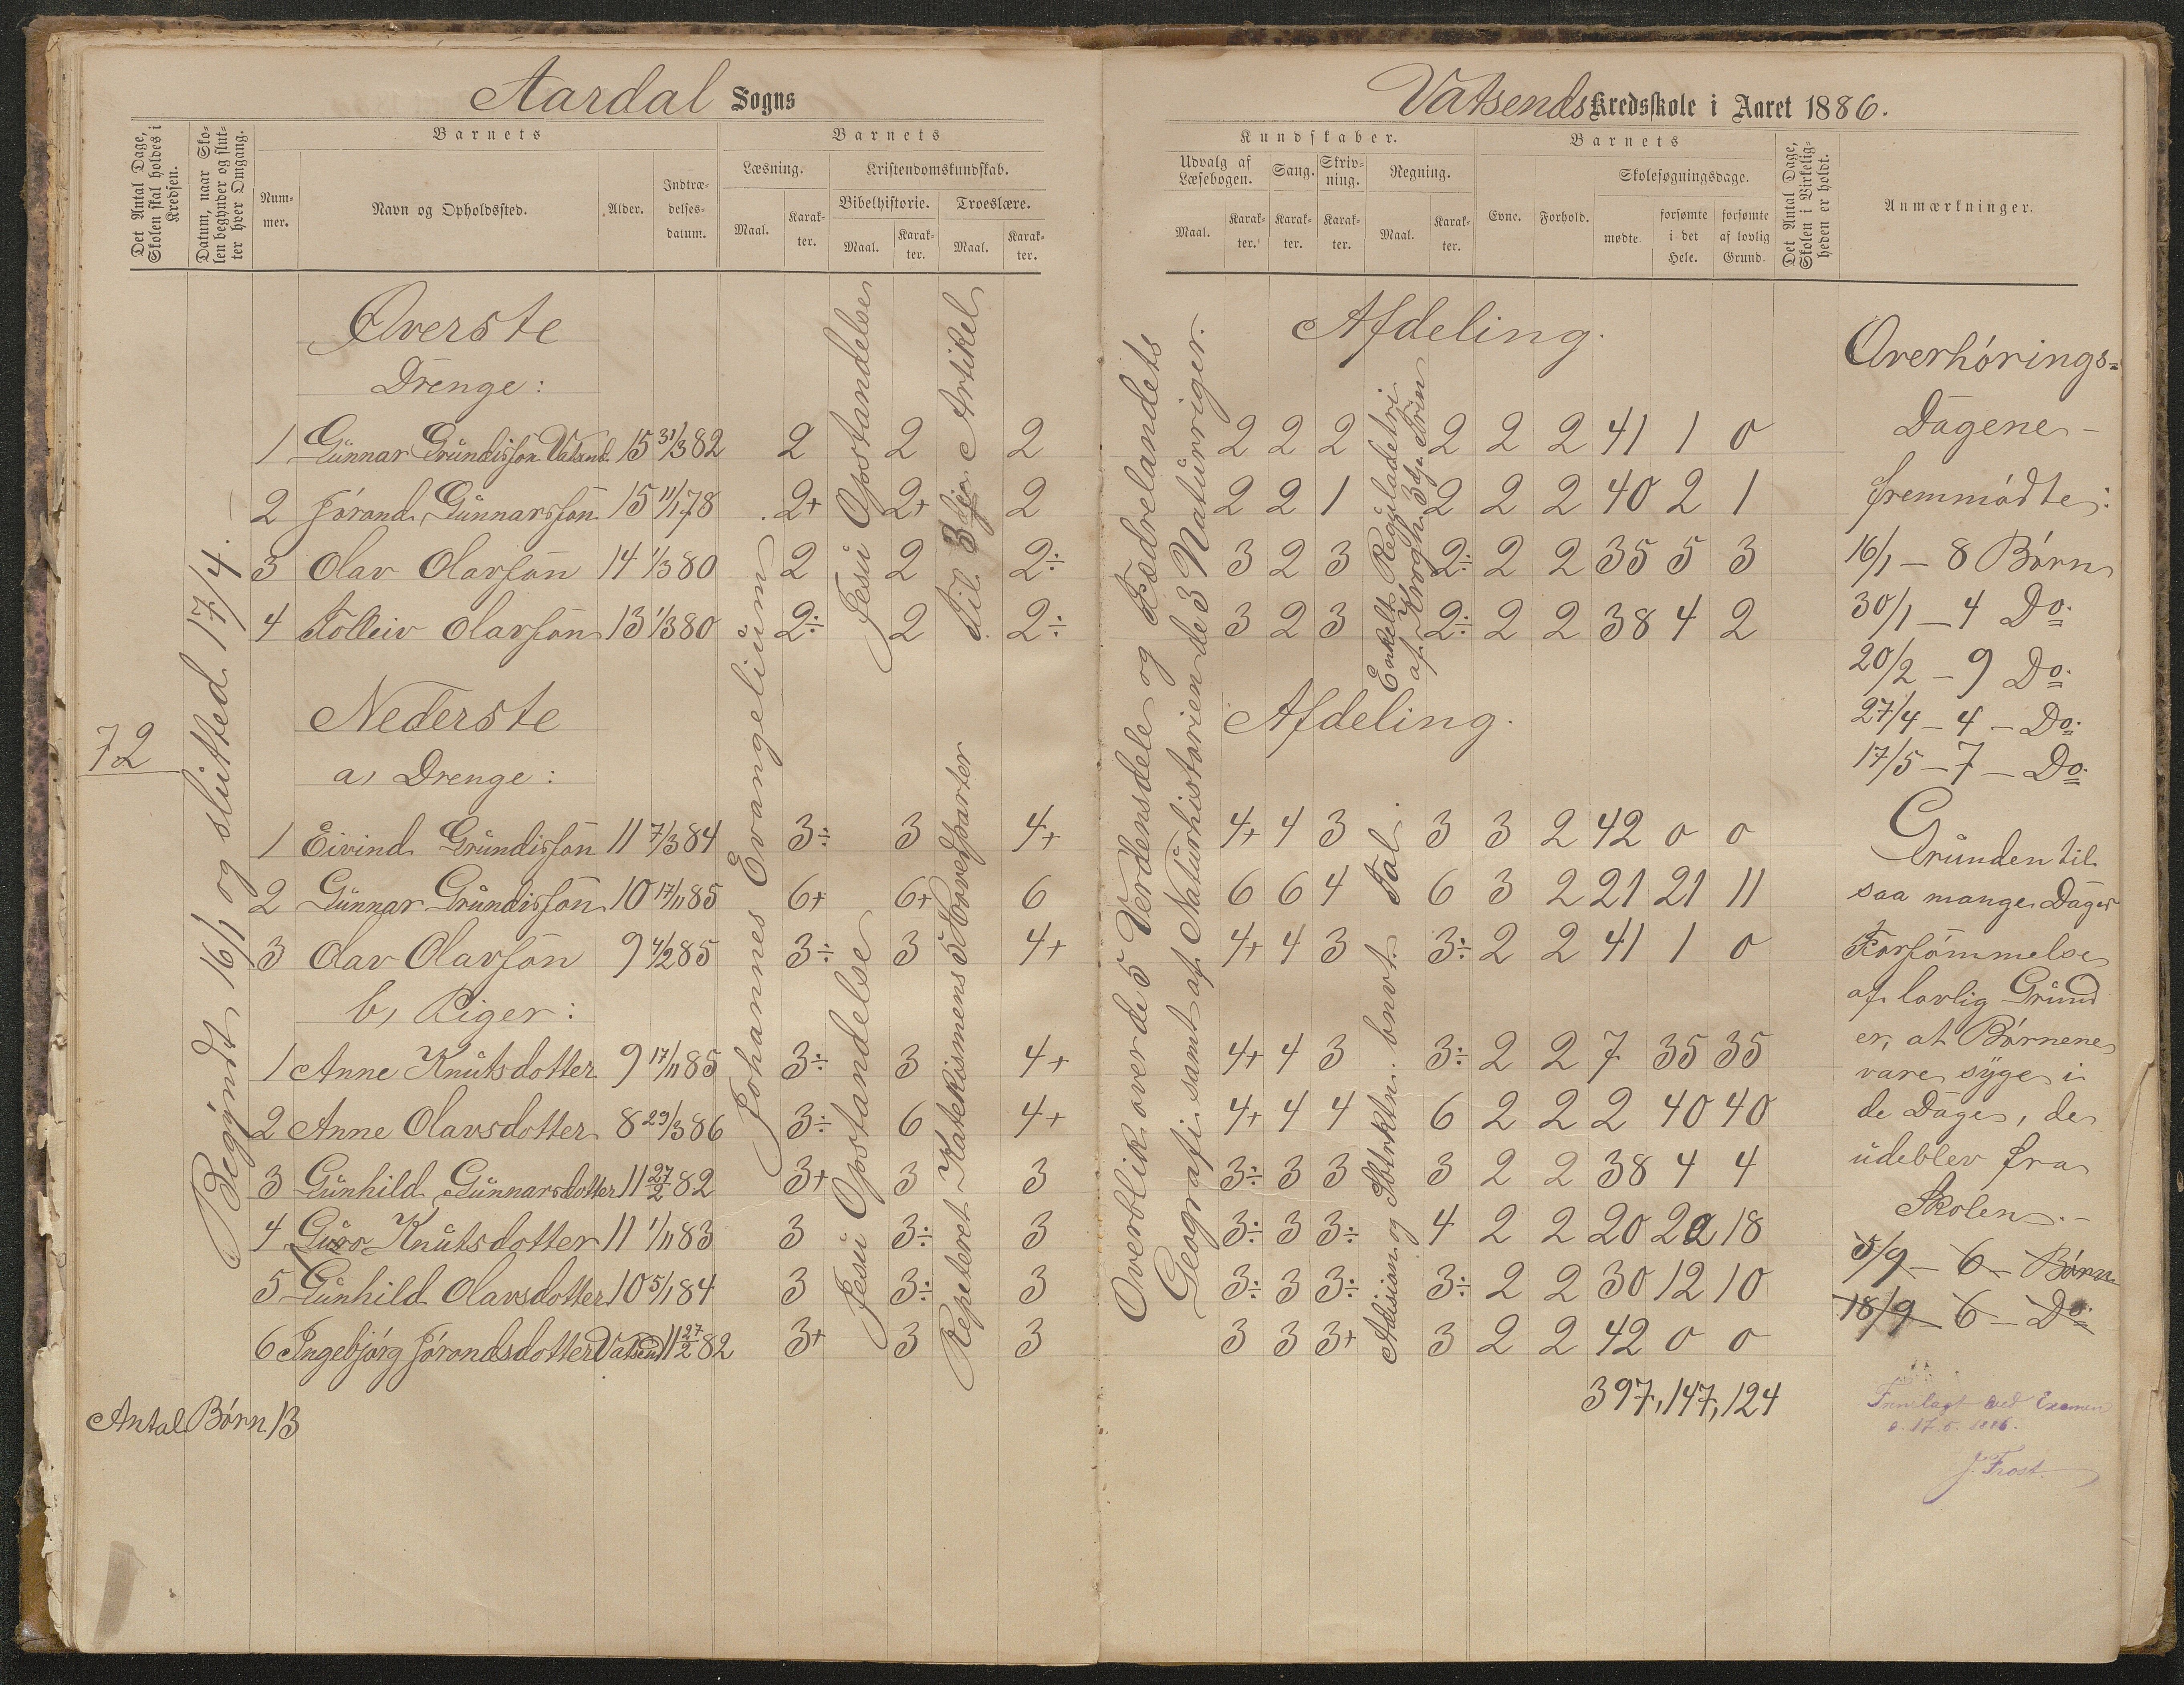 Aardal Sogns
Vatsends Kredsskole i Aaret 1886.
Det Antal Dage, Skolen skal holdes i Kredsen.
Datum, naar Skolen begynder og slutter hver Omgang.
Barnets
Nummer.
Navn og Opholdssted.
Alder.
Indtrædelsesdatum.
Barnets
Læsning.
Maal.
Karakter.
Kristendomskundskab.
Bibelhistorie.
Maal.
Karakter.
Troeslære.
Maal.
Karakter.
Kundskaber.
Udvalg af Læsebogen.
Maal.
Karakter.
Sang.
Karakter.
Skrivning.
Karakter.
Regning.
Maal.
Karakter.
Barnets
Evne.
Forhold.
Skolesøgningsdage.
mødte.
forsømte i det Hele.
forsømte af lovlig Grund.
Det Antal Dage, Skolen i Virkeligheden er holdt.
Anmærkninger.
72
Begyndt 16/1 og slutted 17/4.
Øverste Afdeling.
Drenge:
1 Gunnar Grundisson Vatsend. 15 31/3 82 2 2 2 2 2 2 2 2 2 41 1 0
2 Jórand Gunnarsson 15 11/1 78 2+ 2+ 2 2 2 1 2 2 2 40 2 1
3 Olav Olavson 14 1/3 80 2 2 2÷ 3 2 3 2÷ 2 2 35 5 3
4 Tolleiv Olavson 13 1/3 80 2÷ 2 2÷ 3 2 3 2÷ 2 2 38 4 2
Nederste Afdeling.
a, Drenge:
1 Eivind Grundisson 11 7/3 84 3÷ 3 4+ 4+ 4 3 3 3 2 42 0 0
2 Gunnar Grundisson 10 17/11 85 6+ 6+ 6 6 6 4 6 3 2 21 21 11
3 Olav Olavson 9 4/2 85 3÷ 3 4+ 4+ 4 3 3÷ 2 2 41 1 0
b, Piger:
1 Anne Knutsdotter 9 17/11 85 3÷ 3 4+ 4+ 4 3 3÷ 2 2 7 35 35
2 Anne Olavsdotter 8 29/3 86 3÷ 6 4+ 4+ 4 4 6 2 2 2 40 40
3 Gunhild Gunnarsdotter 11 27/2 82 3+ 3 3 3÷ 3 3 3 2 2 38 4 4
4 Guro Knutsdotter 11 1/11 83 3 3÷ 3 3÷ 3 3÷ 4 2 2 20 22 18
5 Gunhild Olavsdotter 10 5/1 84 3 3÷ 3 3÷ 3 3÷ 3÷ 2 2 30 12 10
6 Ingebjórg Jórandsdotter Vatsend 11 27/2 82 3+ 3 3 3 3 3+ 3 2 2 42 0 0
397, 147, 124
Antal Børn 13
Johannes Evangelium
Jesu Opstandelse
Til 3dje Artikel
Jesu Opstandelse
Repeteret Katekismens 5 Hovedparter
Overblik over de 5 Verdensdele og Fædrelandets
Geografi samt af Naturhistorien de 3 Naturriger.
Enkelt Reguladetri
af Krogh 3dje Trin
Adision og Sbtrktn. bnvt. Tal.
Overhørings=
Dagene
fremmødte:
16/1 – 8 Børn
30/1 – 4 Do.
20/2 – 9 Do.
27/4 – 4 – Do.
17/5 – 7 – Do.
Grunden til
saa mange Dages
Forsømmelse
af lovlig Grund
er, at Børnene
vare syge i
de Dage, de
udeblev fra
Skolen. –
5/9 – 6 – Børn
18/9 – 6 – Do.
Fremlagt ved Examen
d. 17. 5. 1886.
J. Frost.